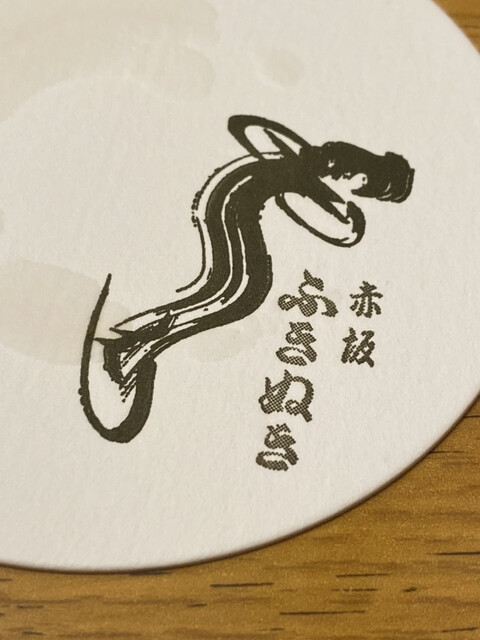 赤坂
ふきぬき